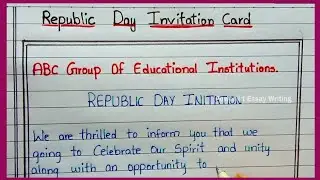 Republic Day Invitation Card
ABC Group Of Educational Institutions.
REPUBLIC DAY INITATION
Essay Writing
We are thrilled to inform you that we
going to Celebrate Our Spirit and unity
along with an opportunity to